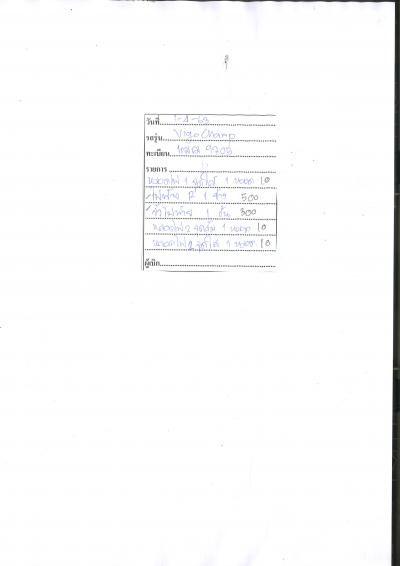 วันที่ 1-4-63
รถรุ่น Vigo Champ
ทะเบียน 9705
รายการ
หลอดไฟ 1 จุดไส้ 1 หลอด 10
ไฟท้าย R 1 ข้าง 500
ไฟท้าย 1 อัน 300
หลอดไฟ 2 จุด 1 หลอด 10
หลอดไฟ 2 จุดไส้ 1 หลอด 10
ผู้เบิก